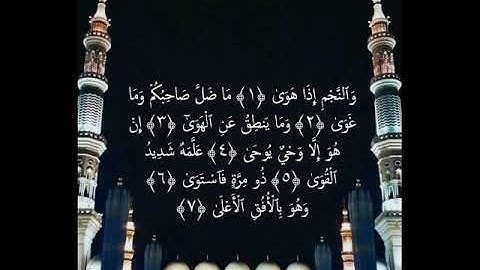 وَٱلنَّجْمِ إِذَا هَوَىٰ ﴿١﴾ مَا ضَلَّ صَاحِبُكُمْ وَمَا
غَوَىٰ ﴿٢﴾ وَمَا يَنطِقُ عَنِ ٱلْهَوَىٰٓ ﴿٣﴾ إِنْ
هُوَ إِلَّا وَحْىٌ يُوحَىٰ ﴿٤﴾ عَلَّمَهُۥ شَدِيدُ
ٱلْقُوَىٰ ﴿٥﴾ ذُو مِرَّةٍ فَٱسْتَوَىٰ ﴿٦﴾
وَهُوَ بِٱلْأُفُقِ ٱلْأَعْلَىٰ ﴿٧﴾